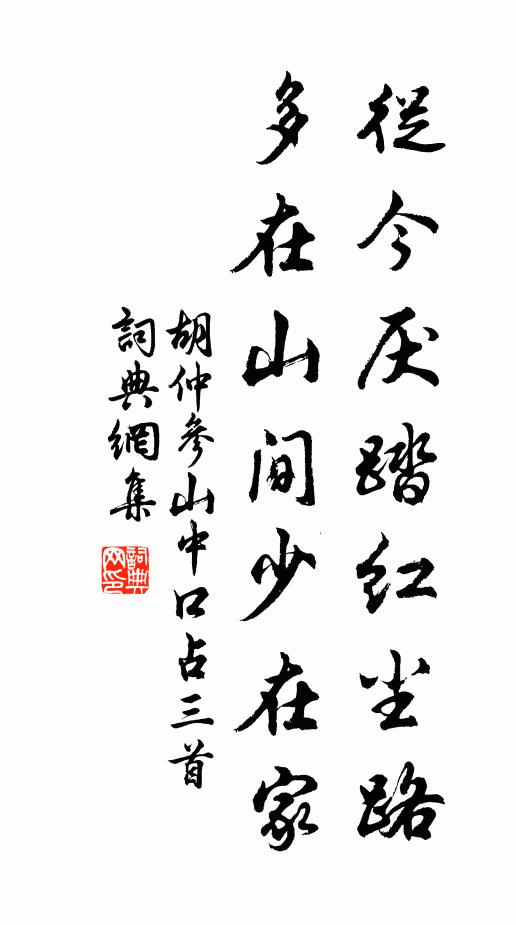 從今厌踏红尘路
多在山间少在家
胡仲參山中口占三首
詞典網集
詞典網印